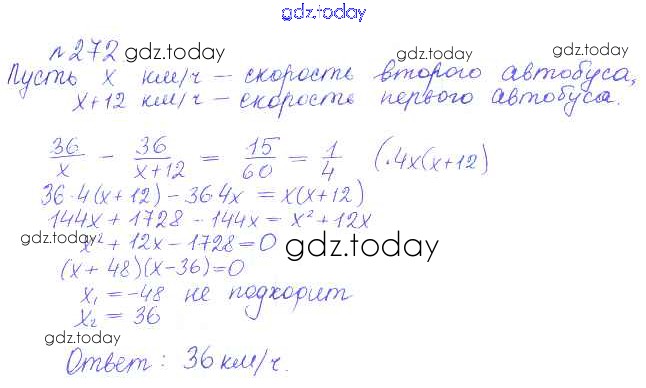 gdz.today
№272 gdz.today gdz.today gdz.today
Пусть x км/ч – скорость второго автобуса,
x+12 км/ч – скорость первого автобуса.
36/x – 36/(x+12) = 15/60 = 1/4 (·4x(x+12)
36·4(x+12) – 36 4x = x(x+12)
144x + 1728 – 144x = x² + 12x
gdz.today x² + 12x – 1728 = 0 gdz.today
(x+48)(x-36)=0
x₁ = -48 не подходит
x₂ = 36
gdz.today gdz.today
Ответ: 36 км/ч.